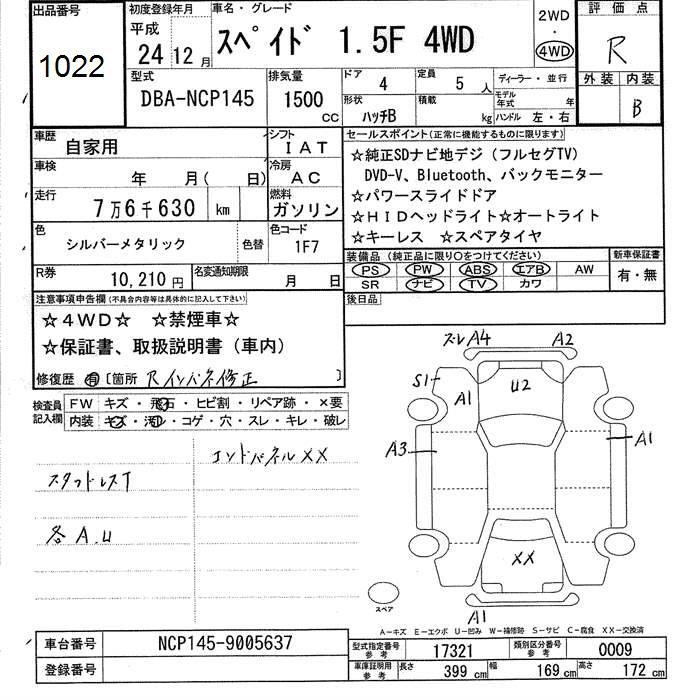 出品番号
1022
初度登録年月
平成
24 12 月
車名・グレード
スペイド 1.5F 4WD
2WD
・
4WD
評価点
R
外装 内装
B
型式
DBA-NCP145
排気量
1500 CC
ドア 4
定員 5 人
形状 ハッチB
積載 kg
ディーラー・並行
モデル年式 年
ハンドル 左・右
車歴 自家用
シフト IAT
車検 年 月( 日)
冷房 AC
走行 7万6千630 km
燃料 ガソリン
色 シルバーメタリック 色替
色コード 1F7
R券 10,210 円
名変通知期限 月 日
セールスポイント(正常に機能するものに限ります)
☆純正SDナビ地デジ(フルセグTV)
DVD-V、Bluetooth、バックモニター
☆パワースライドドア
☆HIDヘッドライト☆オートライト
☆キーレス ☆スペアタイヤ
装備品(純正品に限り○をつけてください)
PS PW ABS エアB AW
SR ナビ TV カワ
新車保証書
有・無
後日品
注意事項申告欄(不具合内容等は具体的に記入して下さい)
☆4WD☆ ☆禁煙車☆
☆保証書、取扱説明書(車内)
修復歴 有 [箇所 Rインパネ修正 ]
検査員記入欄
FW キズ・飛石・ヒビ割・リペア跡・×要
内装 キズ・汚れ・コゲ・穴・スレ・キレ・破レ
エンドパネルXX
スタッドレスT
各A.U
ズレA4 A2
S1
A1
U2
A3
A1
XX
A1
スペア
A-キズ E-エクボ U-凹み W-補修跡 S-サビ C-腐食 XX-交換済
車台番号 NCP145-9005637
登録番号
型式指定番号 参考 17321
類別区分番号 参考 0009
車庫証明用 参考 長さ 399 cm 幅 169 cm 高さ 172 cm